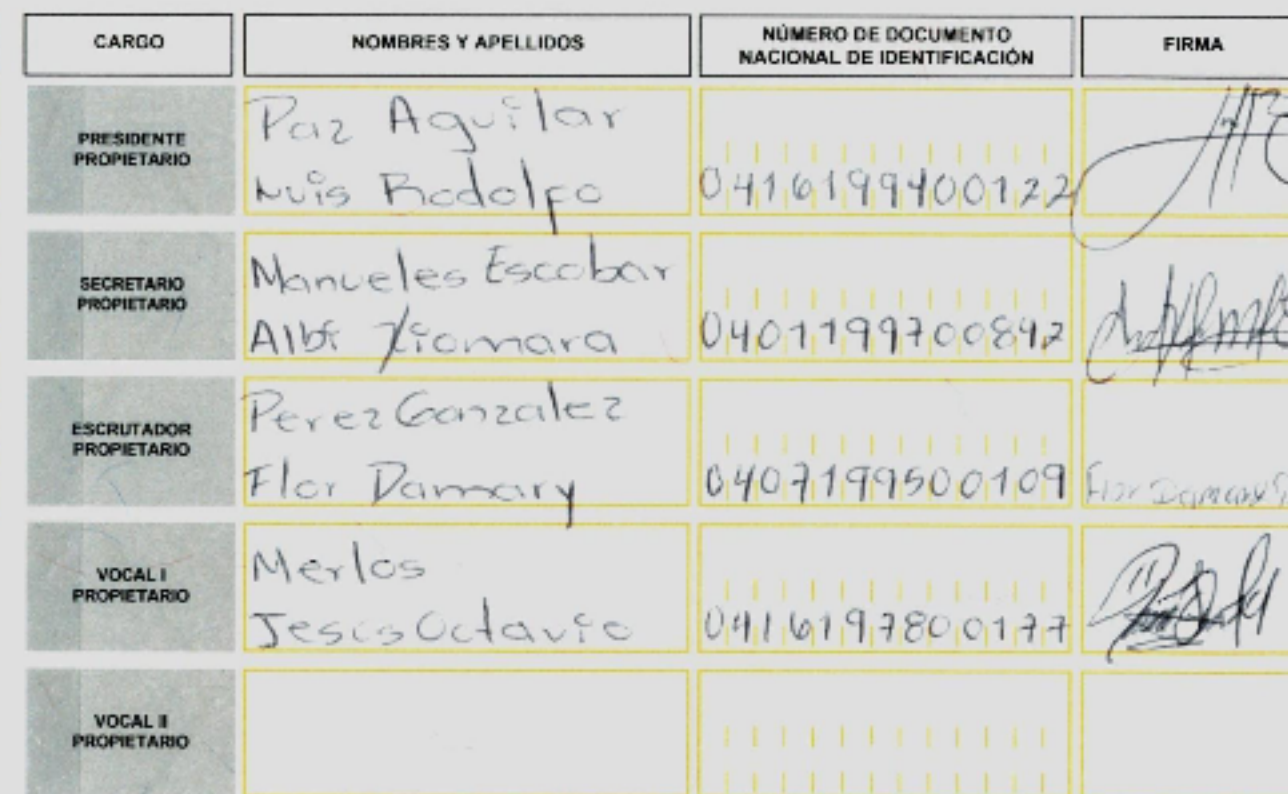 CARGO
NOMBRES Y APELLIDOS
NÚMERO DE DOCUMENTO
NACIONAL DE IDENTIFICACIÓN
FIRMA
PRESIDENTE
PROPIETARIO
Paz Aguilar
Luis Rodolfo
0416199400122
SECRETARIO
PROPIETARIO
Manueles Escobar
Xiomara
0401199700842
ESCRUTADOR
PROPIETARIO
Perez Gonzalez
Flor Damary
0407199500109
Flor Damary
VOCAL I
PROPIETARIO
Merlos
Jesus Octavio
0416197800177
VOCAL II
PROPIETARIO